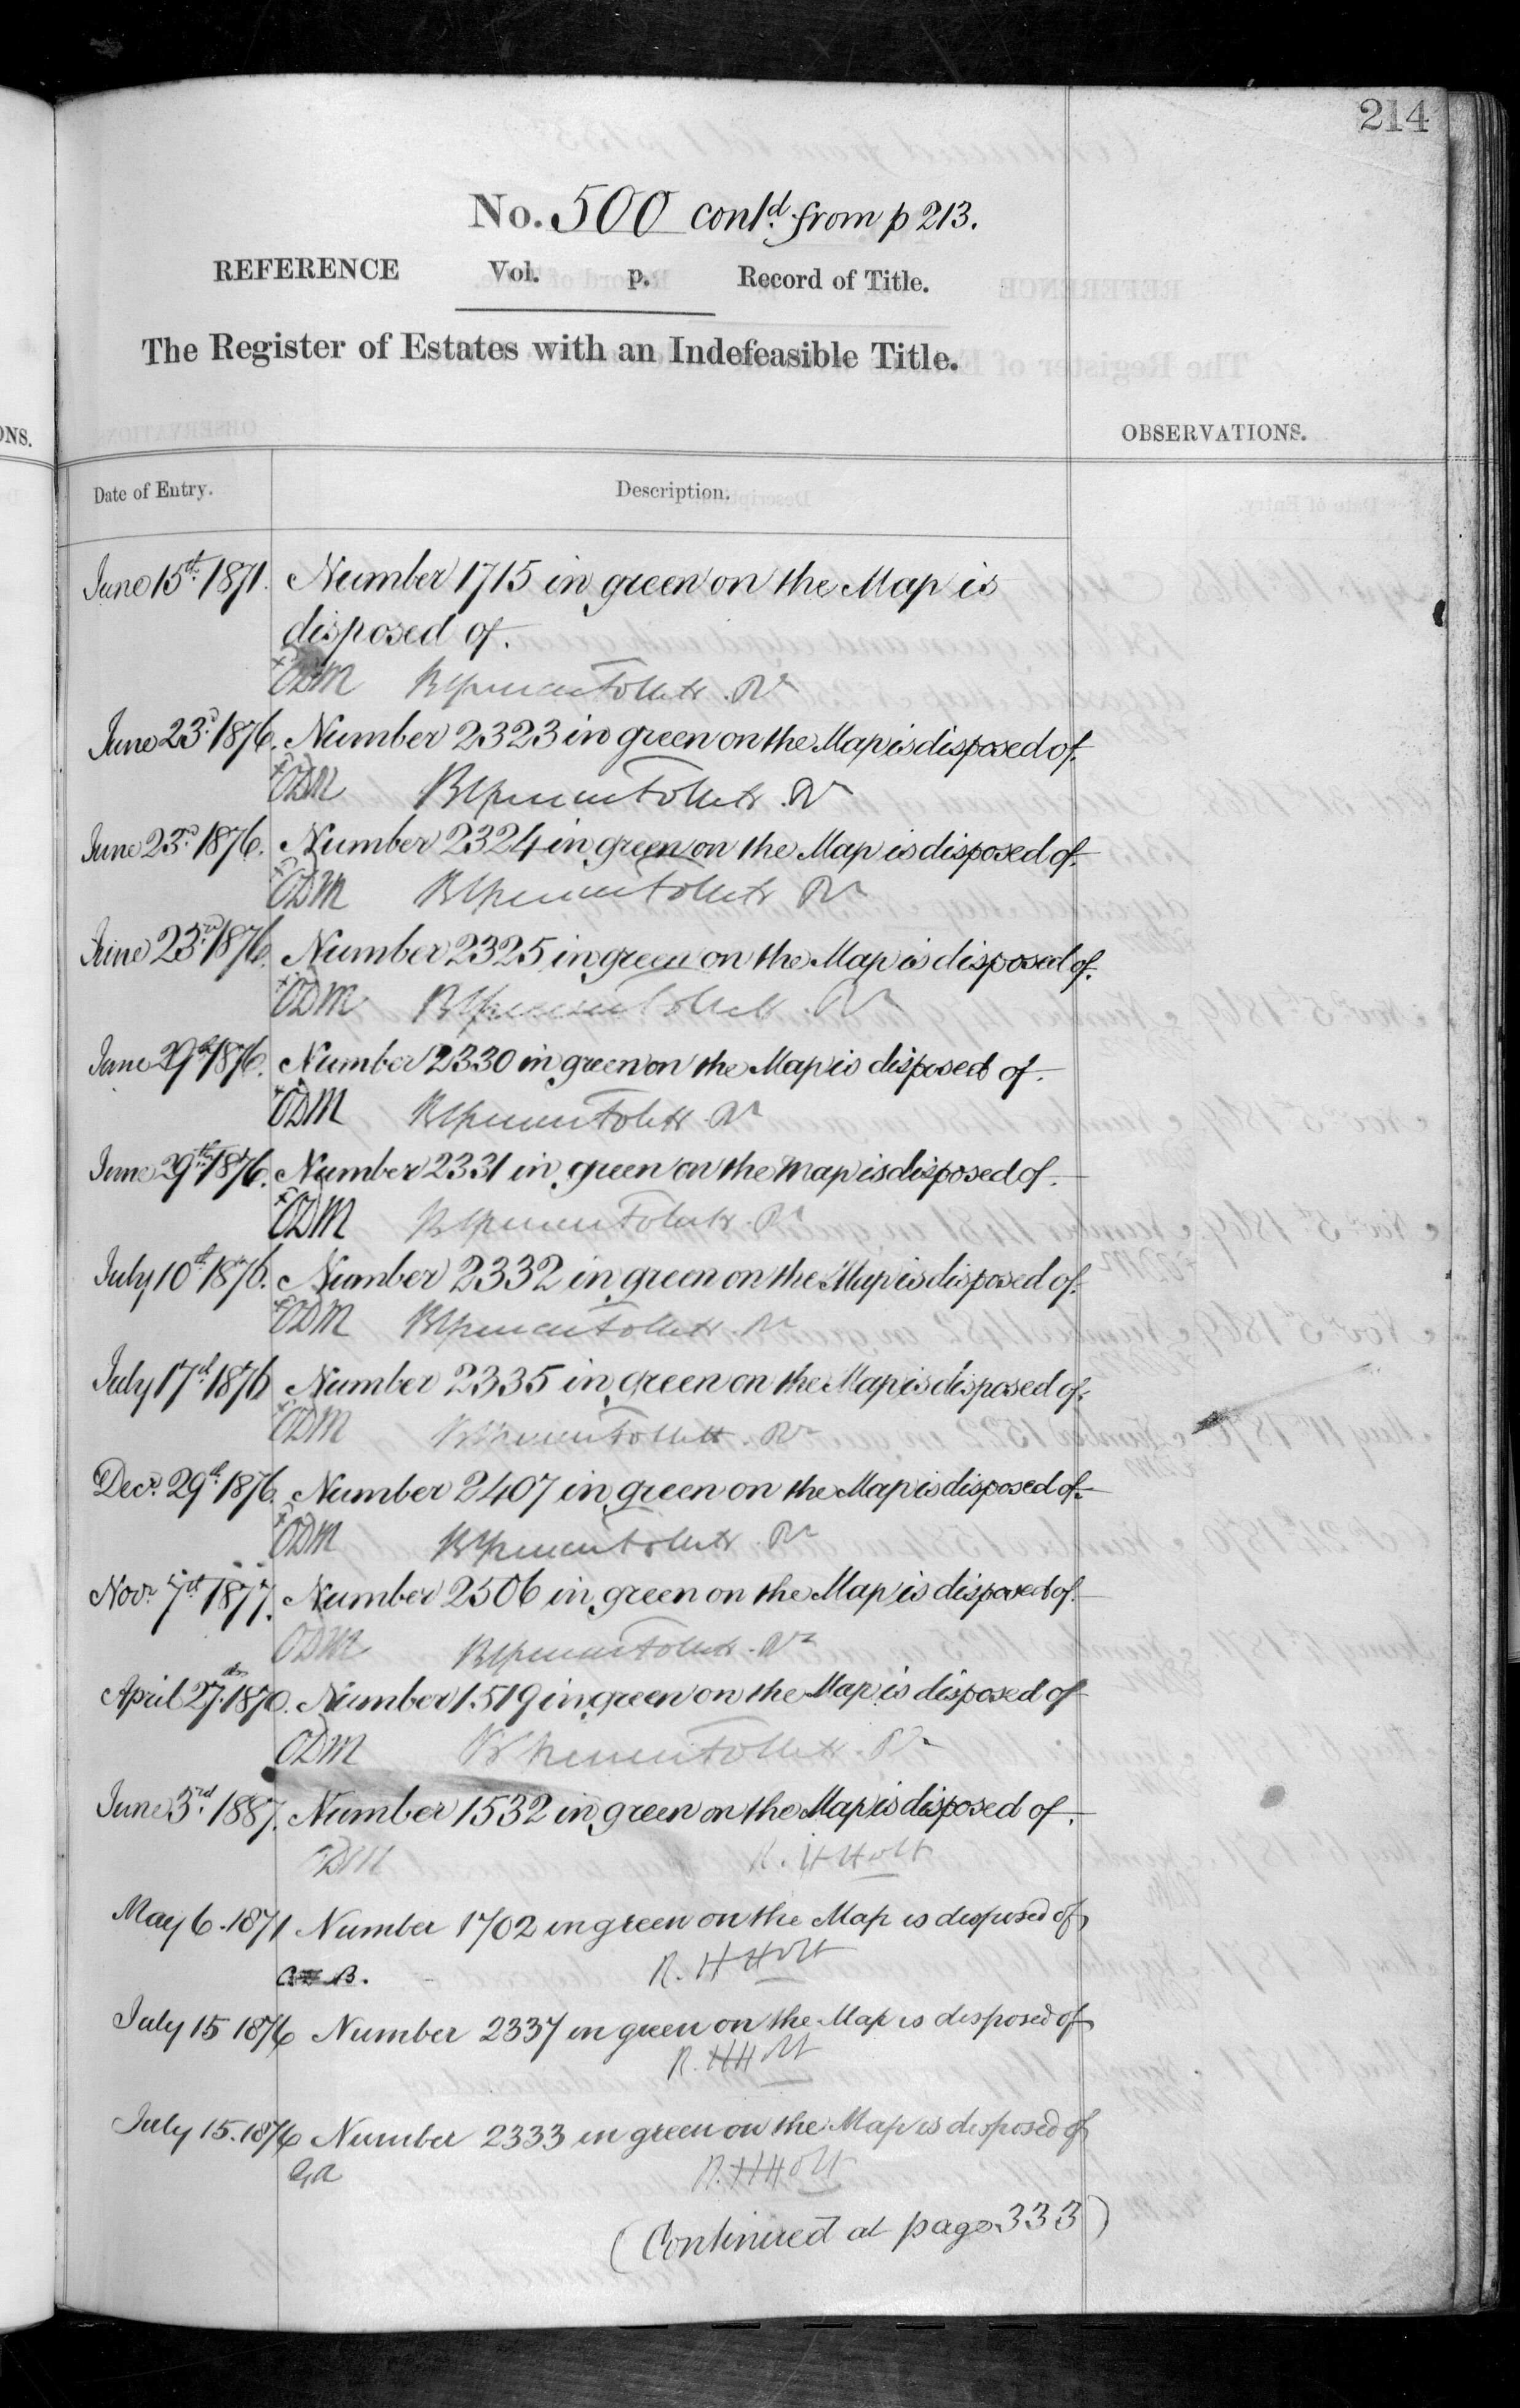 214
No. 500 contd. from p 213.
REFERENCE Vol. p. Record of Title.
The Register of Estates with an Indefeasible Title.
ONS.
OBSERVATIONS.
Date of Entry. Description.
June 15th. 1871. Number 1715 in green on the Map is
disposed of.
ODM
June 23d. 1876. Number 2323 in green on the Map is disposed of.
ODM
June 23d. 1876. Number 2324 in green on the Map is disposed of.
ODM
June 23d. 1876. Number 2325 in green on the Map is disposed of.
ODM
June 29th 1876. Number 2330 in green on the Map is disposed of.
ODM
June 29th 1876. Number 2331 in green on the Map is disposed of.
ODM
July 10th 1876. Number 2332 in green on the Map is disposed of.
ODM
July 17th 1876 Number 2335 in green on the Map is disposed of.
ODM
Decr. 29th. 1876. Number 2407 in green on the Map is disposed of.
ODM
Novr. 7th 1877. Number 2506 in green on the Map is disposed of.
ODM
April 27th. 1870. Number 1519 in green on the Map is disposed of
ODM
June 3rd. 1887. Number 1532 in green on the Map is disposed of.
ODM R. H Holt
May 6. 1871 Number 1702 in green on the Map is disposed of
R. H Holt
July 15 1876 Number 2337 in green on the Map is disposed of
R. H Holt
July 15. 1876 Number 2333 in green on the Map is disposed of
R. H Holt
(Continued at page 333)